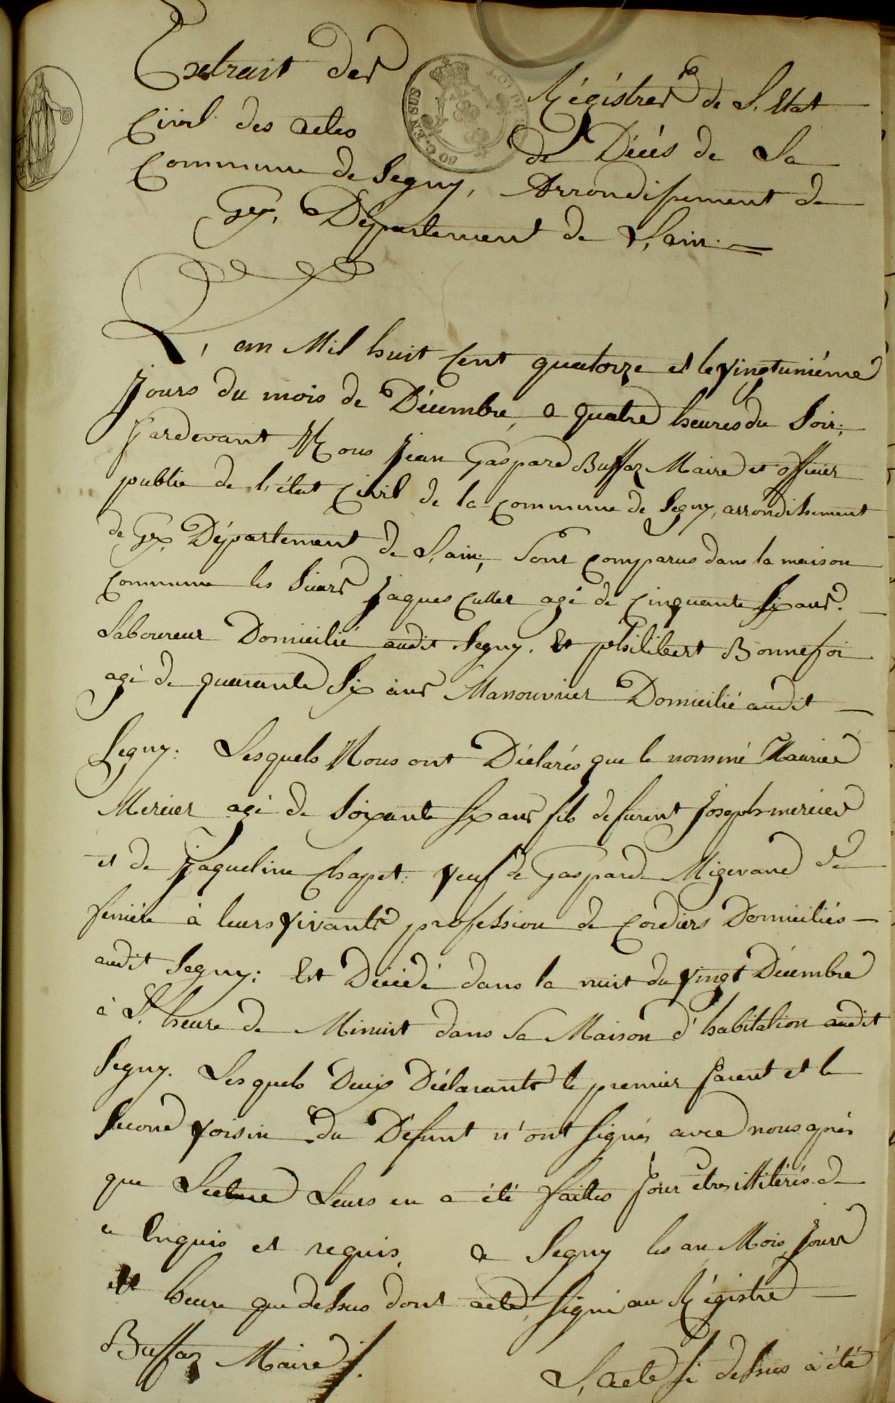 Extrait des Régistres de L'Etat
Civil des actes de Décés de La
Commune de Segny, Arrondissement de
Gex, Département de L'ain.
L'an Mil huit Cent quatorze et le vingtuniéme
Jours du mois de Décembre, a quatre heures du Soir,
Pardevant Nous Jean Gaspard Buffaz Maire et officier
public de l'état Civil de la Commune de Segny, arrondissement
de Gex, Département de L'ain, Sont Comparus dans la maison
Commune les Sieurs Jaques Cullet agé de Cinquante Six ans.
Laboureur Domicilié audit Segny. Et philibert Bonnefoi
agé de quarante Six ans Manouvrier Domicilié audit
Segny: Lesquels Nous ont Déclarés que le nommé
Mercier agé de Soixante Six ans fils defunt Joseph mercier
et de Jaqueline Chapet: veuf de Gaspard de
à leurs vivants profession de Cordiers Domiciliés
audit Segny: Est Décédé dans la nuit du vingt Décembre
à L'heure de Minuit dans Sa Maison d'habitation audit
Segny. Lesquels Deux Déclarants le premier Parent et le
Second voisin Du Défunt n'ont Signés avec nous aprés
que Lecture Leurs en a été faites Pour être illitérés de
ce Enquis et requis, a Segny les an Mois Jours
et heure que dessus dont acte, Signé au Régistre
Buffaz Maire.
L'acte si dessus a été
60 C. EN SUS